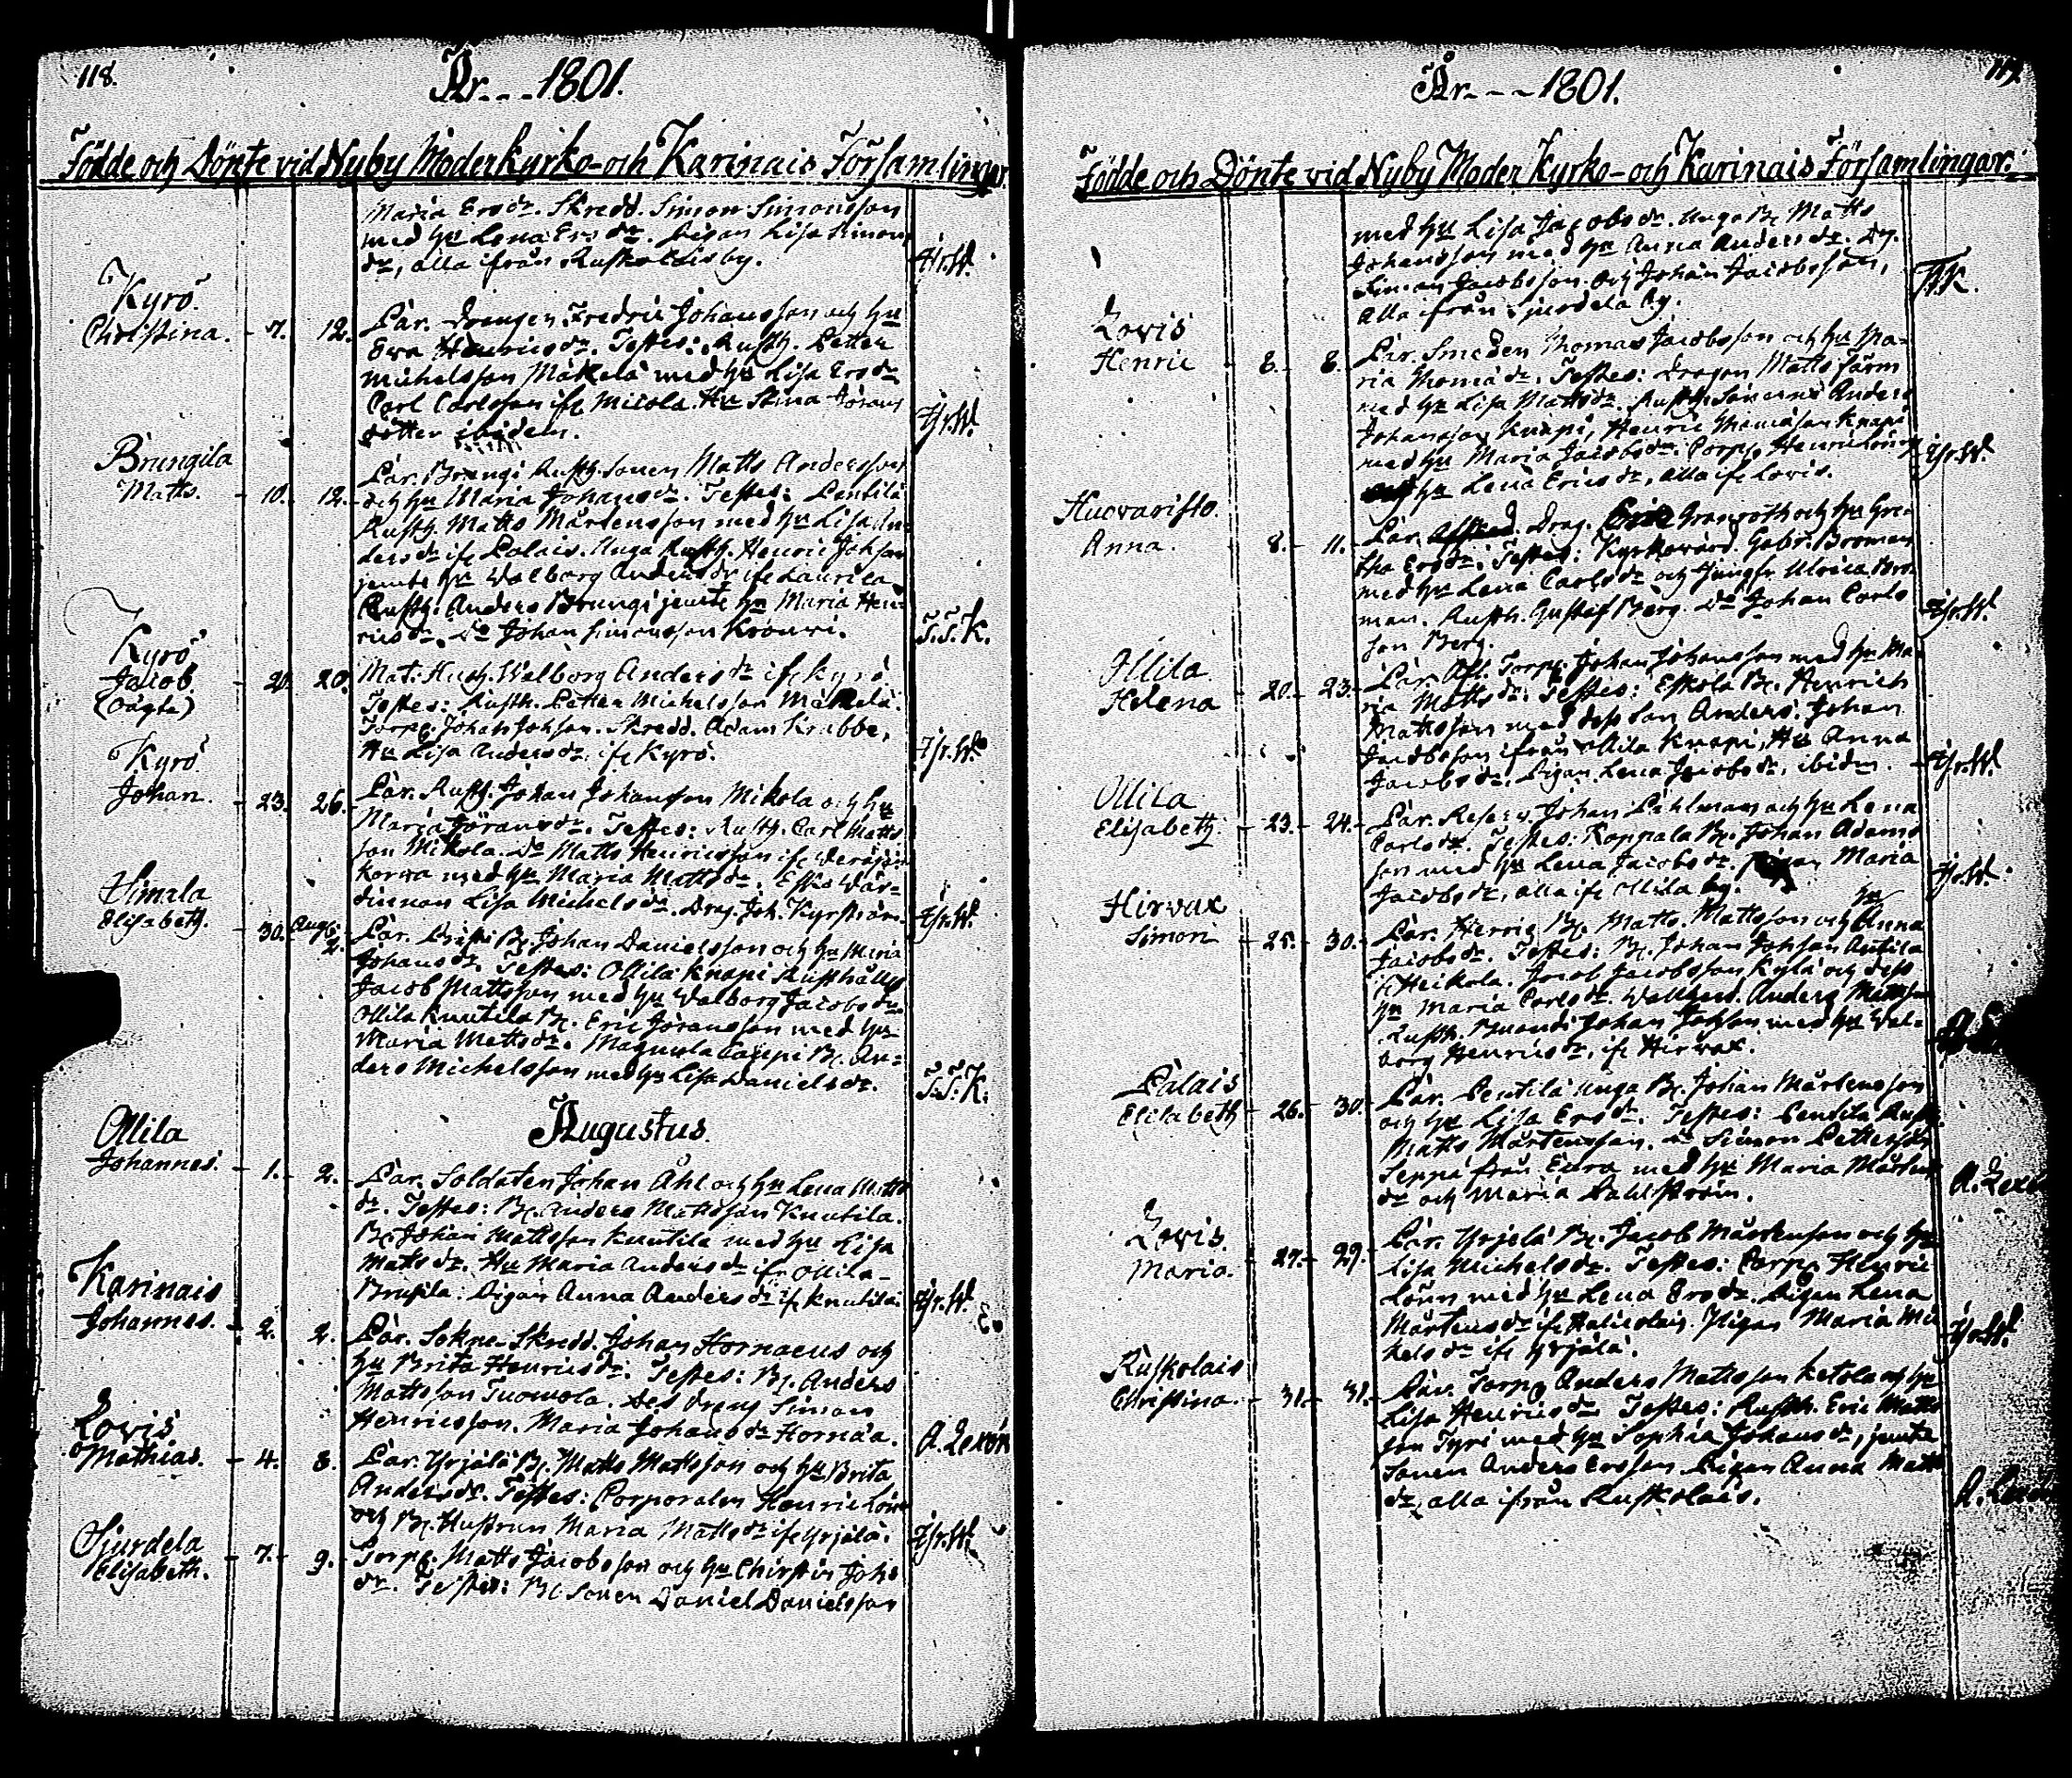 118.
År - - - 1801.
Födde och Döpte vid Nyby Moderkyrko- och Karinais Församlingar.
Maria Ersdr. Skredd. Simon Simonsson
med hu Lena Ersdr. Pigan Lisa Simons
dr, alla ifrån Ruskolaisby.
Kyrö
Christina. 7. 12. Par. Drengen Fredric Johansson och hu
Ewa Henricsdr. Testes: Rusth. Petter
Michelsson Mäkelä med hu Lisa Ersdr
Carl Carlsson ifr Micola. Hu Stina Görans
dotter ibidem.
Brungila
Matts. 10. 12. Par. Brungi Rusth. Sonen Matts Andersson
och hu Maria Johansdr. Testes: Pentilä
Rusth. Matts Mårtensson med hu Lisa An-
dersdr ifr Palais. Unga Rusth. Henric Johsson
jemte hu Walborg Andersdr ifr Laurila
Rusth. Anders Brungi jemte hu Maria Hen-
ricsdr. Do Johan Simonsson Krouwi. S.S.K.
Kyrö
Jacob 20. 20. Mat: Hush. Walborg Andersdr ifr Kyrö.
(oägta) Testes: Rusth. Petter Michelsson Mäkelä.
Torp. Johan Johsson. Skredd. Adam Krabbe,
Hu Lisa Andersdr ifr Kyrö.
Kyrö
Johan. 23. 26. Par. Rusth. Johan Johansson Mikola och hu
Maria Göransdr. Testes: Rusth. Carl Matts
son Mikola. Do Matts Henricsson ifr
korwa med hu Maria Mattsdr. Wär-
dinnan Lisa Michelsdr. Drag. Joh. Kyrström.
Himala
Elisabeth. 30. Aug. 2. Par. B. Johan Danielsson och hu Maria
Johansdr. Testes: Ollila Knapi Rusthåller
Jacob Mattsson med hu Walborg Jacobsdr
Ollila Knutila B. Eric Jöransson med hu
Maria Mattsdr. Magnula B. An-
ders Michelsson med hu Lisa Danielsdr. S.S.K.
Augustus.
Ollila
Johannes. 1. 2. Par. Soldaten Johan Åhl och hu Lena Matts
dr. Testes: B. Anders Mattsson Knutila.
B. Johan Mattsson Knutila med hu Lisa
Mattsdr. Hu Maria Andersdr ifr Ollila-
Brusila. Pigan Anna Andersdr ifr Knutila.
Karinais
Johannes. 2. 2. Par. Sokne-Skredd. Johan Hornaeus och
hu Brita Henricsdr. Testes: B. Anders
Mattsson Tuomola. Des dreng Simon
Henricsson. Maria Johansdr Hornäa. A. Lexen
Lovis
Mathias. 4. 8. Par. Yrjälä B. Matts Mattsson och hu Brita
Andersdr. Testes: Corporalen Henric Lönn
och B. Hustrun Maria Mattsdr ifr Yrjälä.
Sjurdela
Elisabeth. 7. 9. Torp. Matts Jacobsson och hu Chirstin Johs
dr. Testes: B. Sonen Daniel Danielsson
119.
År - - - 1801.
Födde och Döpte vid Nyby Moder Kyrko- och Karinais Församlingar.
med hu Lisa Jacobsdr. Unga B. Matts
Johansson med hu Anna Andersdr. Dr.
Simon Jacobsson och Johan Jacobsson,
alla ifrån Sjurdela by.
Lovis
Henric 8. 8. Par. Smeden Thomas Jacobsson och hu Ma-
ria Thomädr. Testes: Dragon Matts Färm
med hu Lisa Mattsdr. Rusth. Sönerne Anders
Johansson Knapi, Henric Thomasson Knapi
med hu Maria Jacobsdr. Corp. Henric Lönn
hu Lena Ericsdr, alla ifr Lovis.
Huovaristo
Anna. 8. 11. Par. Drag. Eric Granroth och hu Gre-
tha Ersdr. Testes: Kyrkowärd. Gabr. Broman
med hu Lena Carlsdr och Jungfr Ulrica Bro-
man. Rusth. Gustaf Berg. Do Johan Carls
son Berg.
Ollila
Helena 20. 23. Par. Afl. Torp. Johan Johansson med hu Ma-
ria Mattsdr. Testes: Eskola B. Henrich
Mattsson med dess son Anders. Johan
Jacobsson ifrån Ollila Knapi, Hu Anna
Jacobsdr. Pigan Lena Jacobsdr, ibidm.
Ollila
Elisabeth. 23. 24. Par. Reserv. Johan Pihlman och hu Lena
Carlsdr. Testes: Roppala B. Johan Adams
son med hu Lena Jacobsdr. Pigan Maria
Jacobsdr, alla ifr Ollila by.
Hirvax
Simon 25. 30. Par. Herrig B. Matts Mattsson och hu Anna
Jacobsdr. Testes: B. Johan Johsson Antila
ifr Heikola. Jacob Jacobsson Kylä och dess
hu Maria Carlsdr. Anders Mattsson
Rusth. Johan Johsson med hu Wal-
borg Henricsdr, ifr Hirvax.
Palais
Elisabeth 26. 30. Par. Pentilä unga B. Johan Mårtensson
och hu Lisa Ersdr. Testes: Pentila Rusth.
Matts Mårtensson. Do Simon Pettersson
Seppä från Eura med hu Maria Mårtens
dr och Maria Dahlström. A. Lexen
Lovis
Maria. 27. 29. Par. Yrjelä B. Jacob Mårtensson och hu
Lisa Michelsdr. Testes: Corp. Henric
Lönn med hu Lena Ersdr. Pigan Lena
Mårtensdr ifr Halikolais. Pigan Maria Mi-
kelsdr ifr Yrjälä.
Ruskolais
Christina. 31. 31. Par. Torp. Anders Mattsson Ketola och hu
Lisa Henricsdr. Testes: Rusth. Eric Matts
son Tyri med hu Sophia Johansdr, jemte
Sonen Anders Ersson. Pigan Anna Matts
dr, alla ifrån Ruskolais.